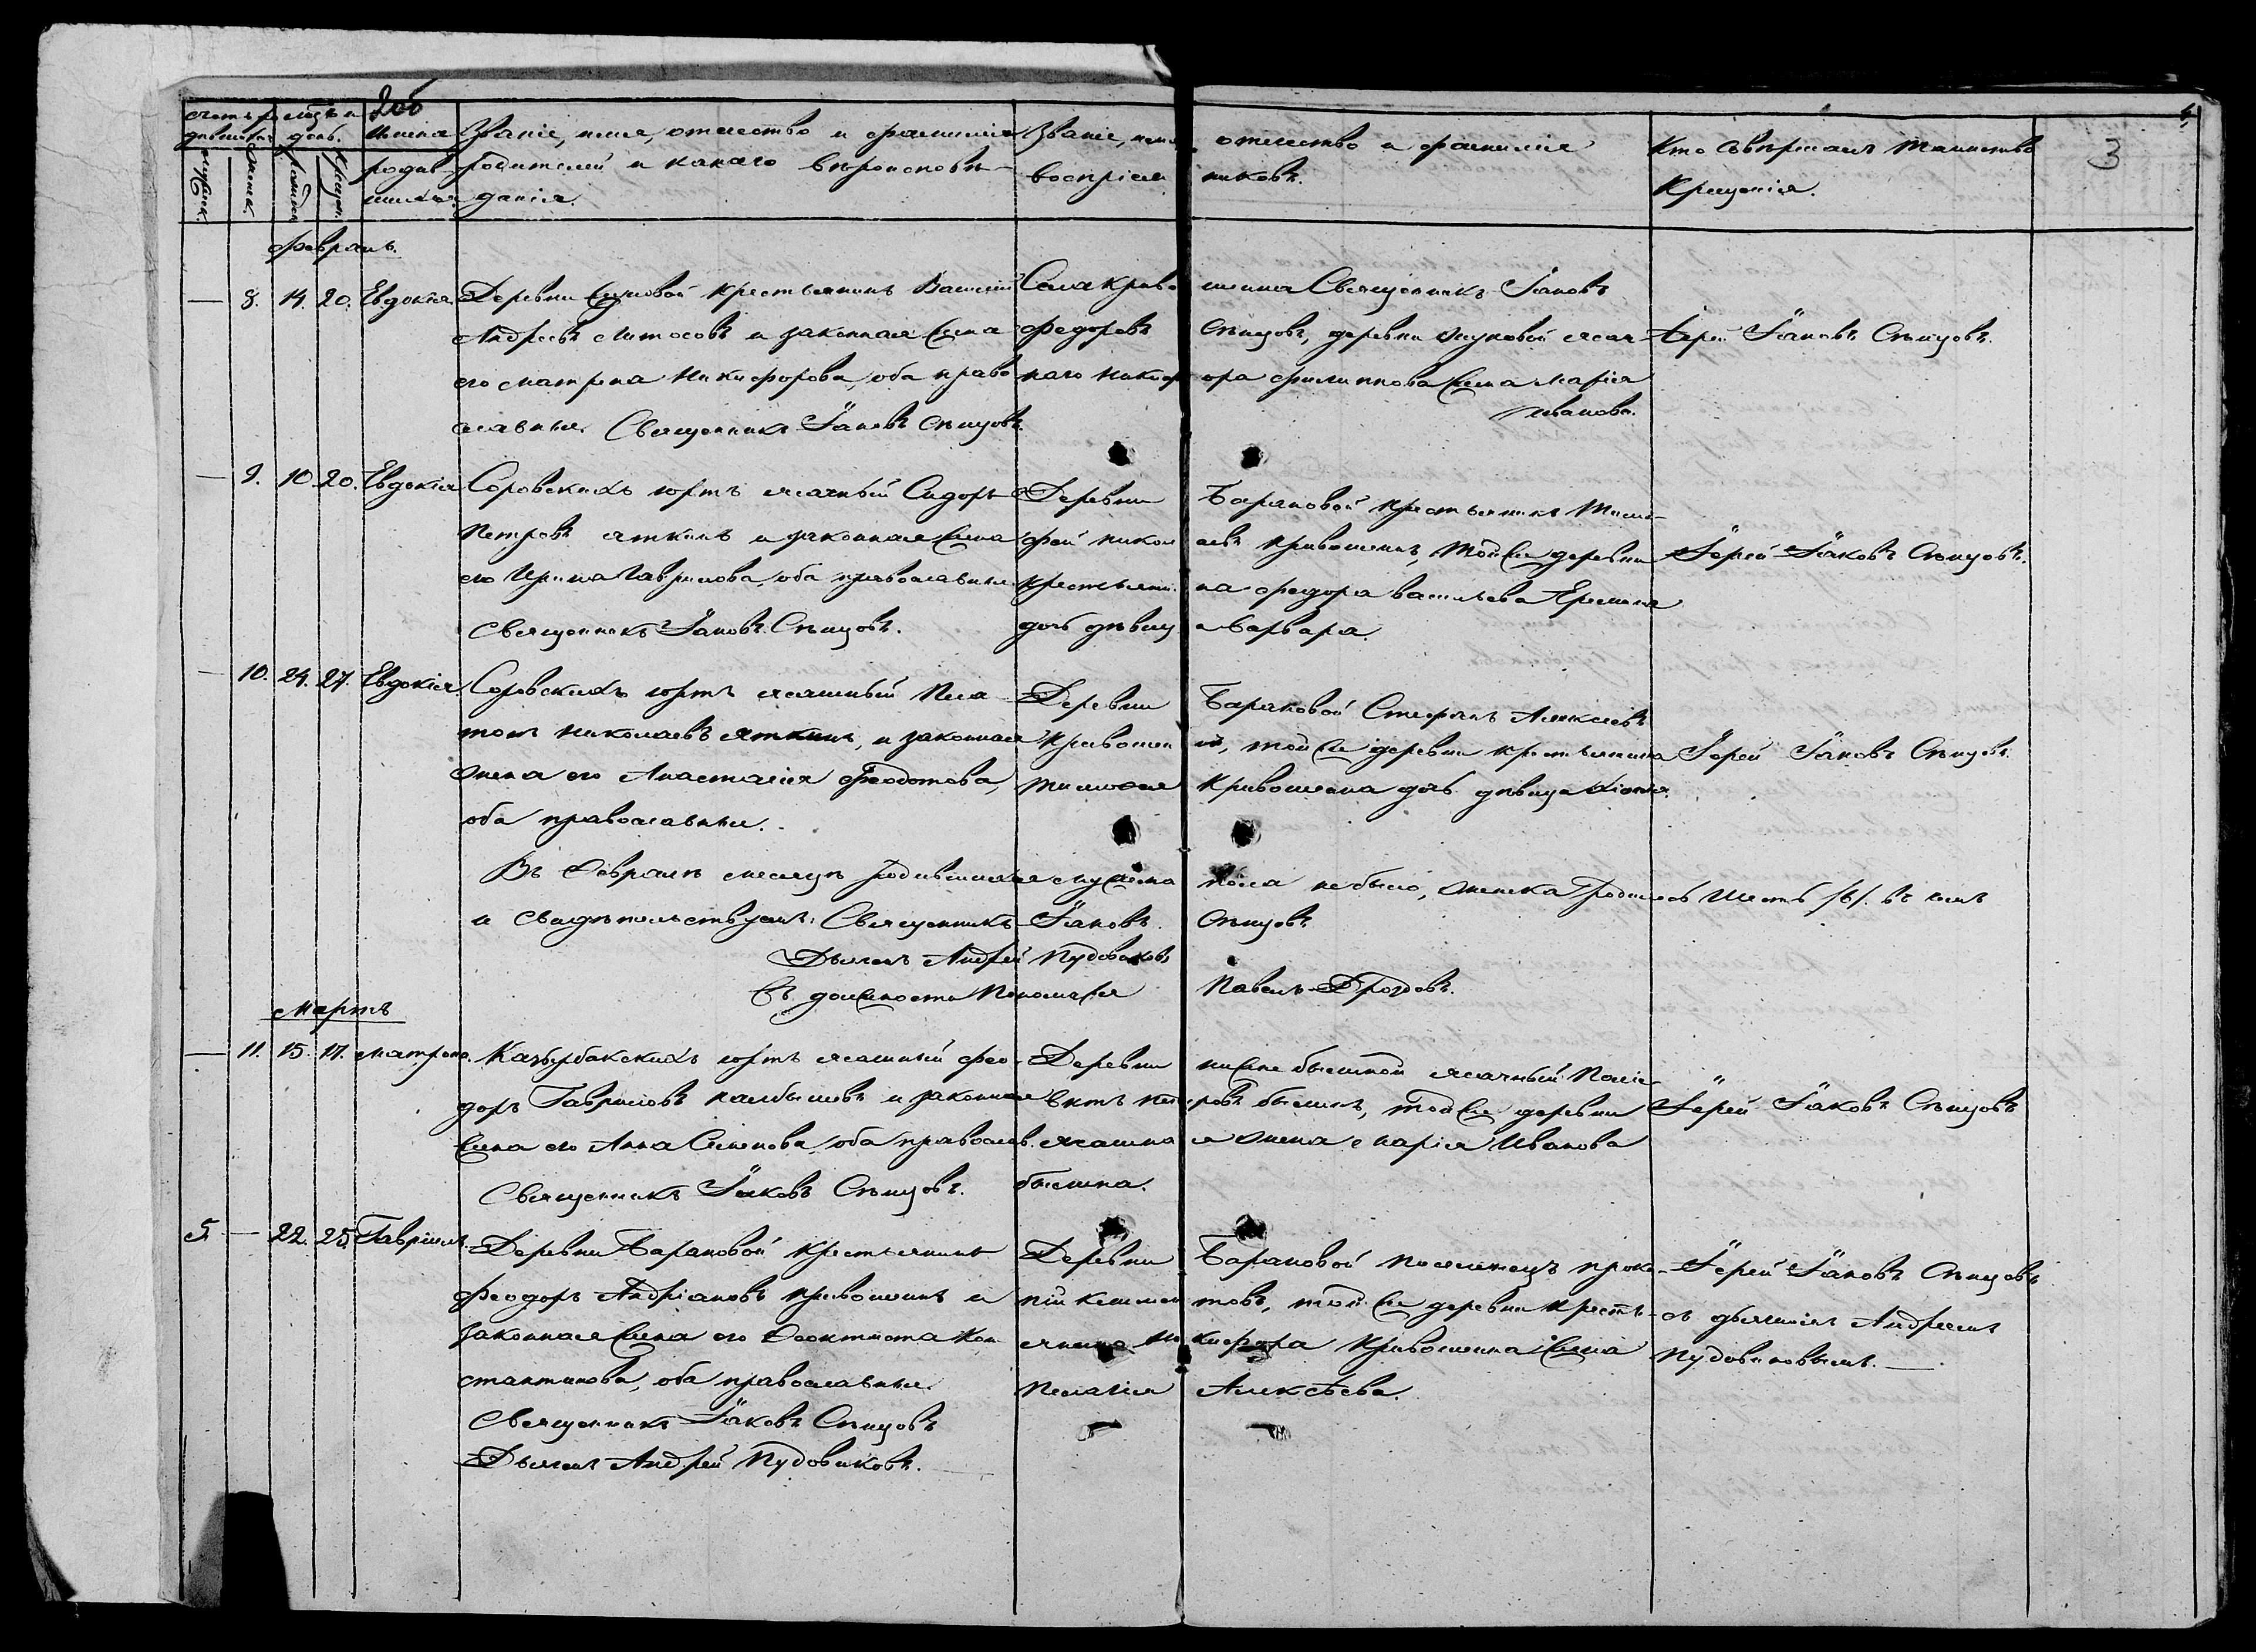 200
счетъ родив месяцъ и день.
Имена родив-шихся.
Званіе, имя, отчество и фамилія родителей и какаго вѣроисповѣ-данія.
Званіе, имя, отчество и фамилія воспріем никовъ.
Кто совершалъ таинство Крещенія.
3
Февраль.
— 8. 14. 20. Евдокія
Деревни Жуковой крестьянинъ Василій
Андреевъ и законная жена
его Матрена Никифорова, оба право
славные. Священникъ Іаковъ Спѣцовъ.
Села Криво шеина Священникъ Іаковъ
Федоровъ Спѣцовъ, деревни Жуковой ясач
наго Никиф ора Филиппова жена Марія
Иванова.
Іерей Іаковъ Спѣцовъ.
— 9. 10. 20. Евдокія
Соровскихъ юртъ ясачный Сидоръ
Петровъ Яткинъ и законная жена
его Ирина Гаврилова, оба православные
Священникъ Іаковъ Спѣцовъ.
Деревни Барановой крестьянинъ Тимо
фей Никол аевъ Кривошеинъ, той же деревни
крестьяни на Федора Васильева Еремина
дочь дѣвиц а Варвара.
Іерей Іаковъ Спѣцовъ.
— 10. 24. 27. Евдокія
Соровскихъ юртъ ясашный Пла
тонъ Николаевъ Яткинъ, и законная
жена его Анастасія Феодотова,
оба православные.
Деревни Барановой Стефанъ Алексѣевъ
Кривошеи нъ, той же деревни крестьянина
Кривошеина дочь дѣвица
Іерей Іаковъ Спѣцовъ.
Въ Февралѣ месяцѣ родившихся мужеска пола не было, женска родилось шесть /6/. въ чемъ
и свидѣтельствуемъ: Священникъ Іаковъ Спѣцовъ
Дьяконъ Андрей Пудовиковъ
въ должности Пономаря Павелъ Дроздовъ.
Мартъ
— 11. 15. 17. Матрона.
юртъ ясашный Фео
доръ Гавриловъ и законная
жена его Анна Семенова, оба православ.
Священникъ Іаковъ Спѣцовъ.
Деревни ясачный
той же деревни
ясашна я жена Марія Иванова
Іерей Іаковъ Спѣцовъ
5. — 22. 25. Гавріилъ.
Деревни Барановой крестьянинъ
Феодоръ Андріановъ Кривошеинъ и
законная жена его Феоктиста Кон
стантинова, оба православные.
Священникъ Іаковъ Спѣцовъ
Дьяконъ Андрей Пудовиковъ.
Деревни Барановой поселенецъ Проко
пій товъ, той же деревни кресть
янина Ни кифора Кривошеина жена
Пелагія Алексѣева.
Іерей Іаковъ Спѣцовъ
съ дьякономъ Андреемъ
Пудовиковымъ.